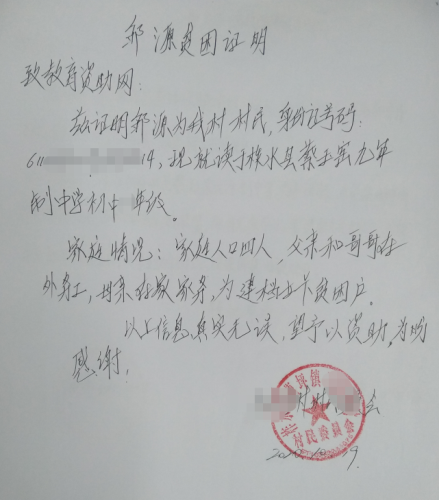 邹源贫困证明
致教育资助网：
兹证明邹源为我村村民，身份证号码：
611 19，现就读于 水县蔡玉窑九年
制中学初中 年级。
家庭情况：家庭人口四人，父亲和哥哥在
外务工，母亲在家家务，为建档立卡贫困户。
以上信息真实无误，望予以资助，为盼
感谢，
会
村民委员会